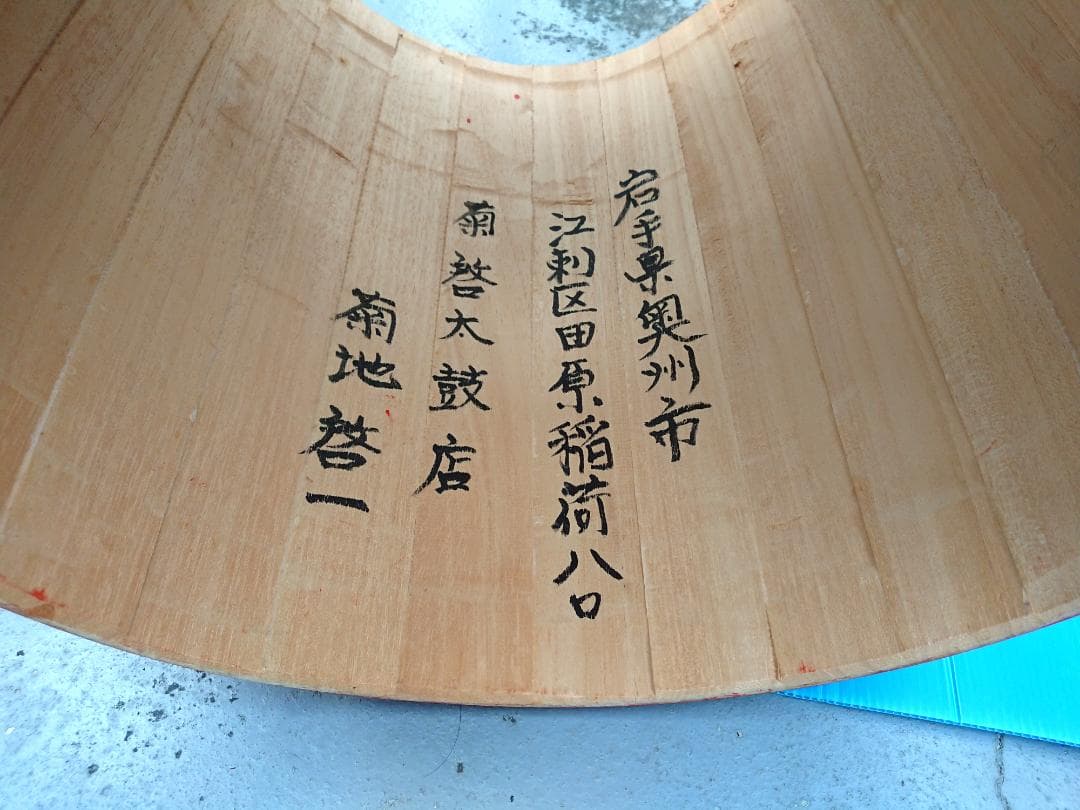 岩手県奥州市
江刺区田原稲荷八口
菊啓太鼓店
菊地啓一